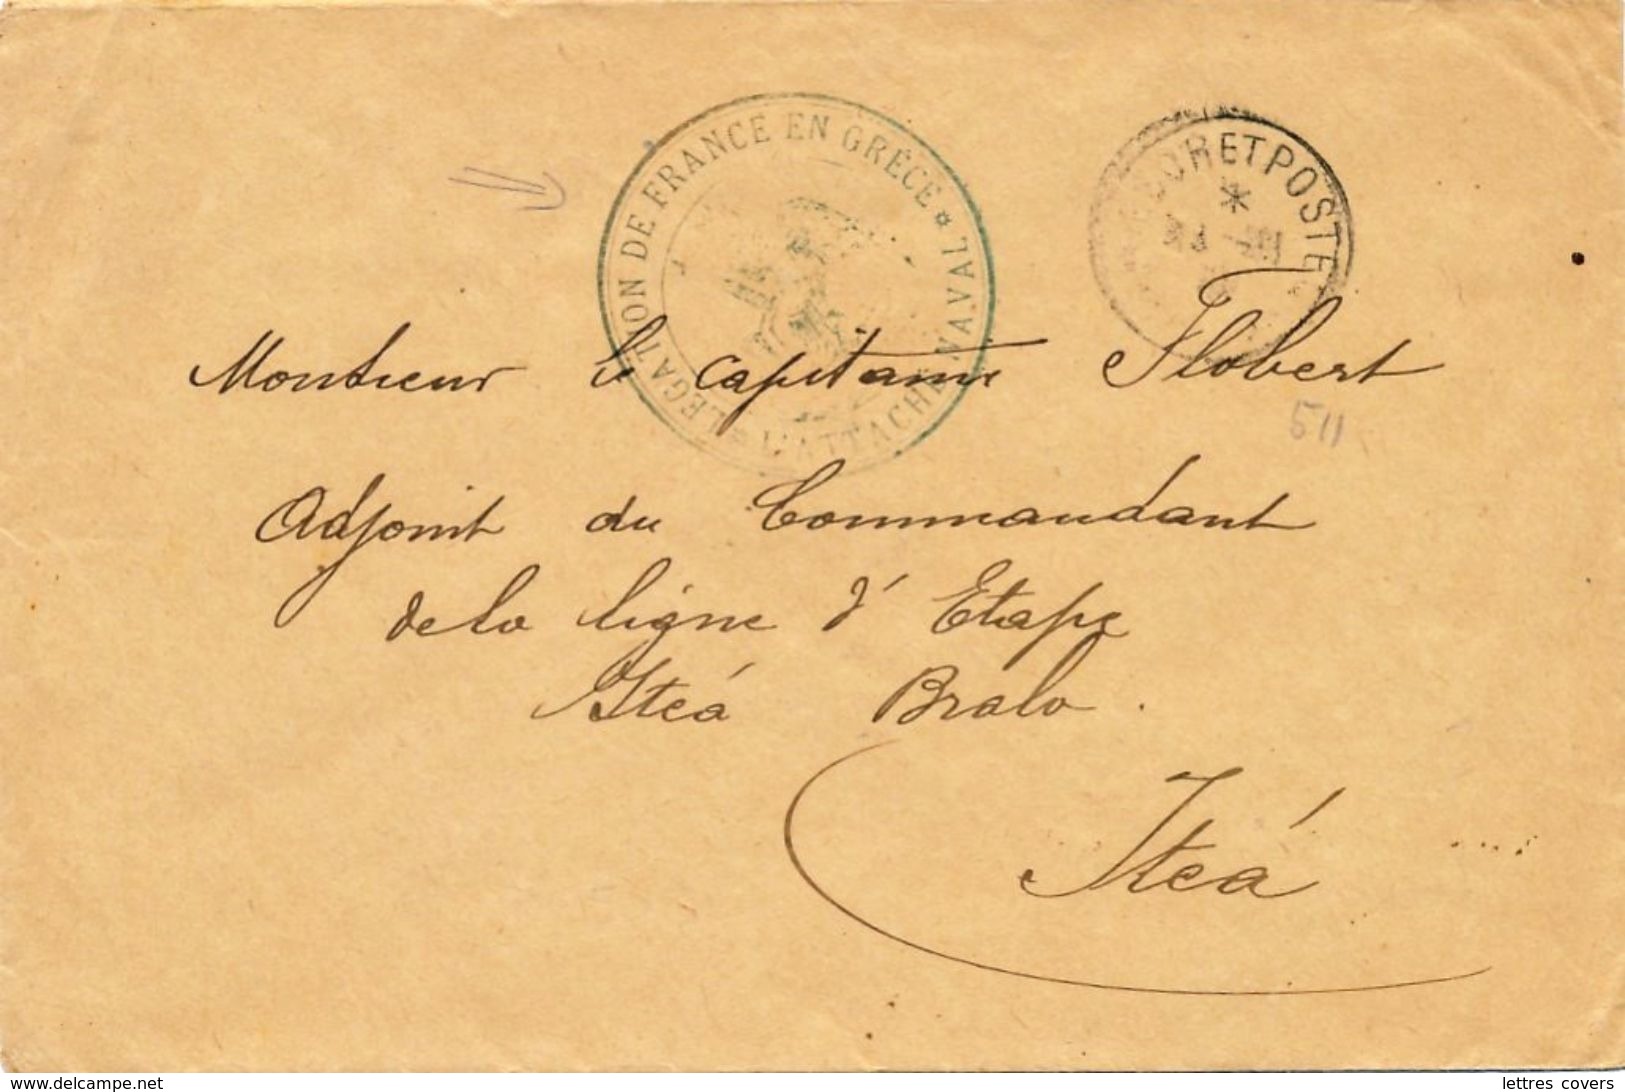 LEGATION DE FRANCE EN GRÈCE * L'ATTACHÉ NAVAL *
ET POSTE
*
Monsieur le Capitaine Flobert
511
Adjoint du Commandant
de la ligne d'Etape
Itéa Bralo.
Itéa
www.delcampe.net
lettres covers